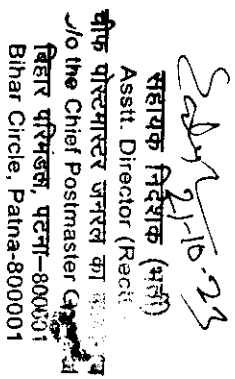 21-10-23
सहायक निदेशक (भर्ती)
Asstt. Director (Rectt.
चीफ पोस्टमास्टर जनरल का
o/o the Chief Postmaster General
बिहार परिमंडल, पटना-800001
Bihar Circle, Patna-800001